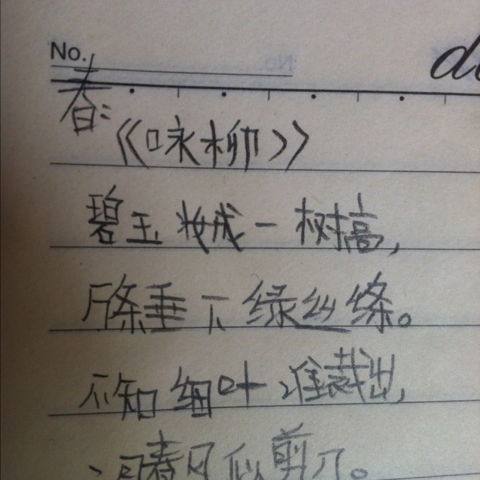 No.
春:
《咏柳》
碧玉妆成一树高,
万条垂下绿丝绦。
不知细叶谁裁出,
二月春风似剪刀。